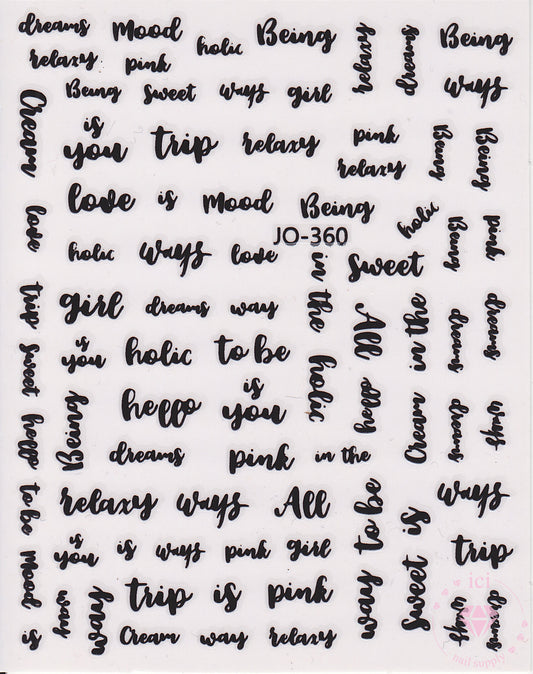 dreams Mood holic Being relaxy dreams Being
relaxy pink
Being sweet ways girl ways
Cream is you trip relaxy pink relaxy Being Being
love is Mood Being holic
love holic ways love sweet Being pink
JO-360
in the
trip girl dreams way All in the dreams dreams
sweet is you holic to be holic
hello Being hello is you hello Cream dreams ways
dreams pink in the
to be relaxy ways All way to be sweet is ways
Mood is you is ways pink girl trip
way trip is pink
is Cream way relaxy dreams
ici
nail supply